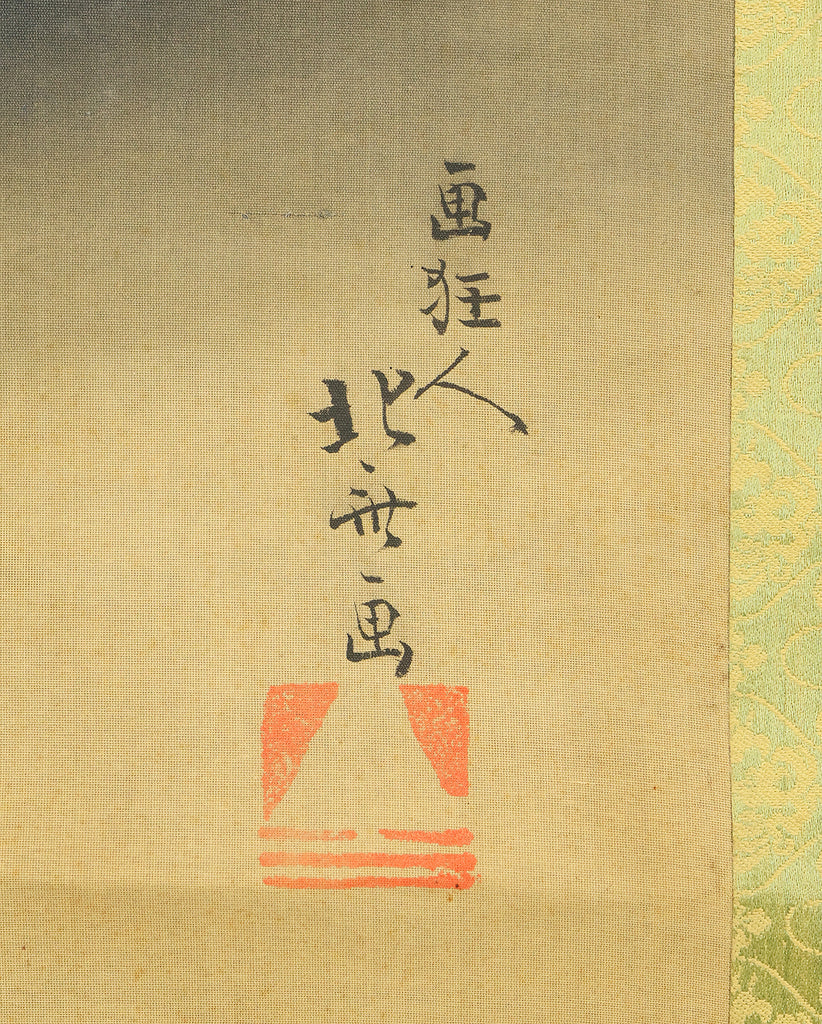 画狂人
北斎画